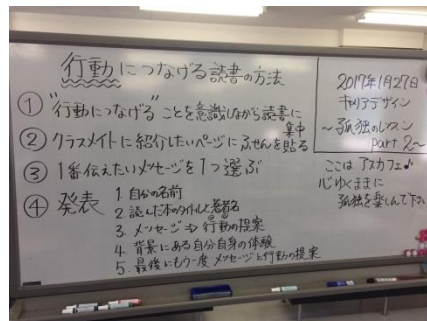 行動につなげる読書の方法
① "行動につなげる"ことを意識しながら読書に
集中
② クラスメイトに紹介したいページにふせんを貼る
③ 1番伝えたいメッセージを1つ選ぶ
④ 発表
1. 自分の名前
2. 読んだ本のタイトルと著者名
3. メッセージ⇒行動の提案
4. 背景にある自分自身の体験
5. 最後にもう一度メッセージと行動の提案
2017年1月27日
キャリアデザイン
~孤独のレッスン
part 2~
ここは アスカフェ♪
心ゆくままに
孤独を楽しんで下さい